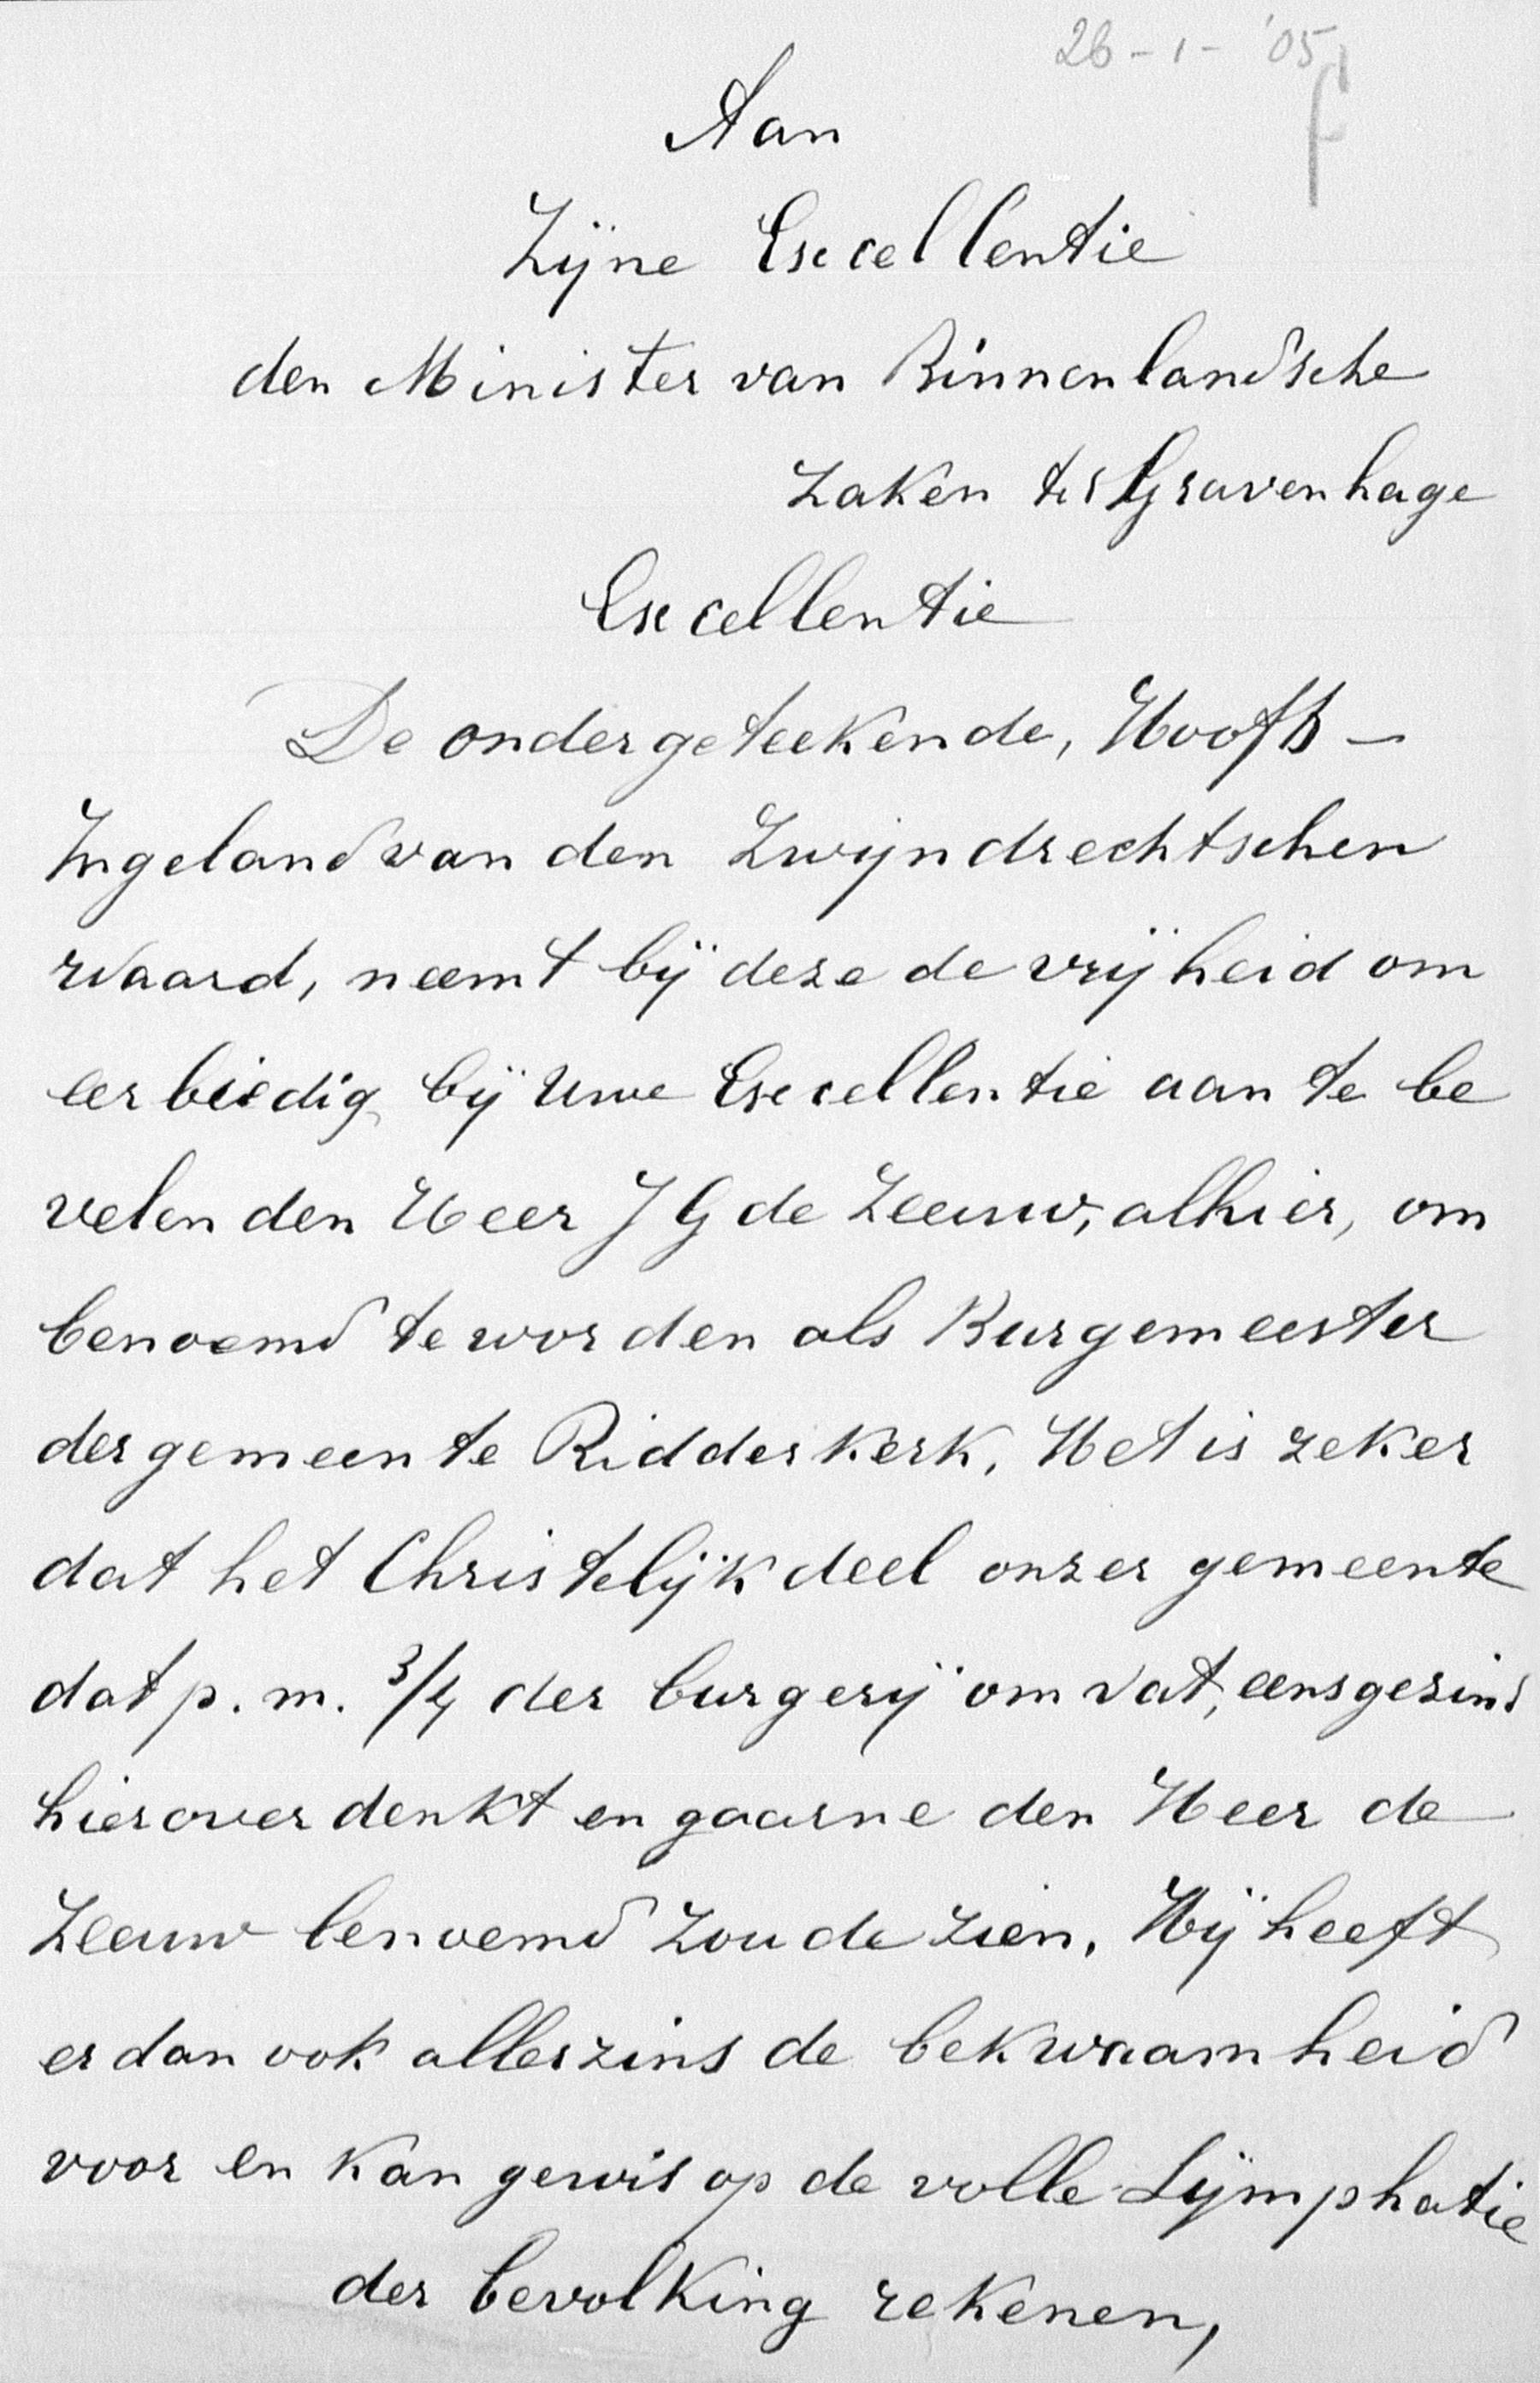 26-1-'05
Aan
Zijne Excellentie
den Minister van Binnenlandsche
Zaken te sGravenhage
Excellentie
De ondergeteekende, Hoofd-
Ingeland van den Zwijndrechtschen
Waard, neemt bij deze de vrijheid om
eerbiedig bij Uwe Excellentie aan te be
velen den Heer J G de Zeeuw, alhier, om
benoemd te worden als Burgemeester
der gemeente Ridderkerk. Het is zeker
dat het Christelijk deel onzer gemeente
dat p. m. 3/4 der burgerij omvat, eensgezind
hierover denkt en gaarne den Heer de
Zeeuw benoemd zoude zien. Hij heeft
er dan ook alleszins de bekwaamheid
voor en kan gewis op de volle Sijmphatie
der bevolking rekenen,